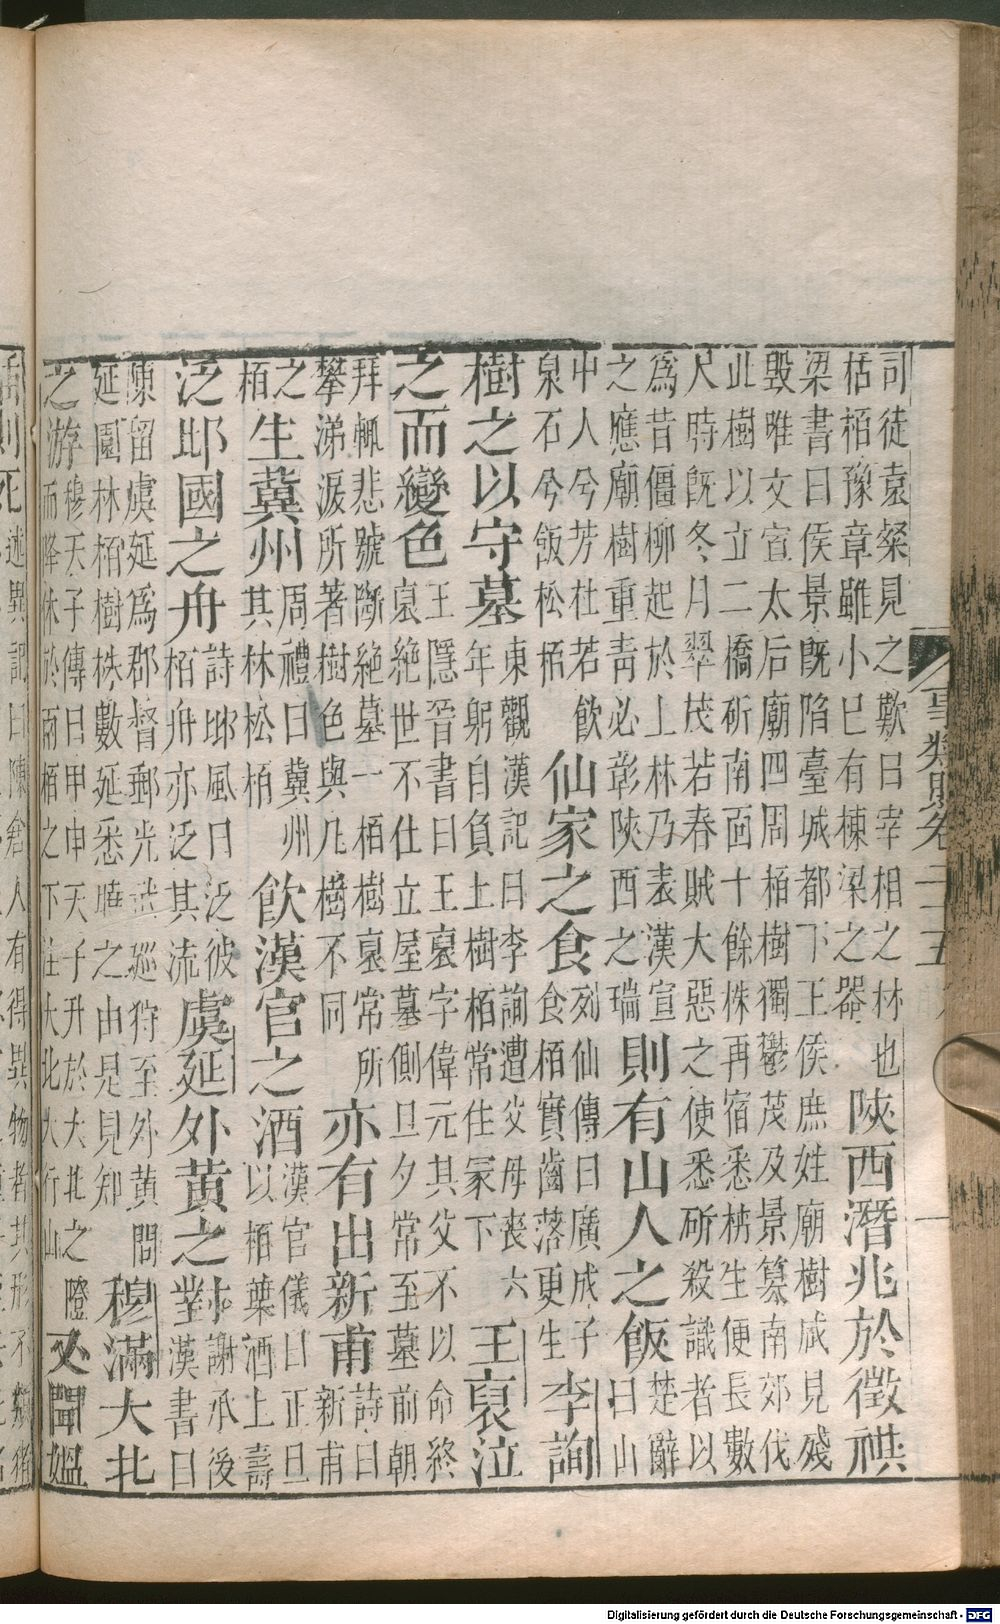 司徒袁粲見之歎曰宰相之林也
栝栢豫章雖小巳有棟梁之器
陝西潛兆於徵祺
梁書曰侯景既陷臺城都下王侯庶姓廟樹咸見殘
毀唯文宣太后廟四周栢樹獨鬱茂及景篡南郊伐
此樹以立二橋斫南面十餘株再宿悉枿生便長數
尺時既冬月翠茂若春賊大惡之使悉斫殺識者以
爲昔僵柳起於上林乃表漢宣
之應廟樹重青必彰陝西之瑞
則有山人之飯
楚辭
曰山
中人兮芳杜若飲
泉石兮飯松栢
仙家之食
列仙傳曰廣成子
食栢實齒落更生
李詢
樹之以守墓
東觀漢記曰李詢遭父母喪六
年躬自負土樹栢常住冢下
王裒泣
之而變色
王隱晉書曰王裒字偉元其父不以命終
裒絶世不仕立屋墓側旦夕常至墓前朝
拜輒悲號斷絶墓一栢樹裒常所
攀涕淚所著樹色與凡樹不同
亦有出新甫
詩曰
新甫
之
栢
生冀州
周禮曰冀州
其林松栢
飲漢官之酒
漢官儀曰正旦
以栢葉酒上壽
泛邶國之舟
詩邶風曰泛彼
栢舟亦泛其流
虞延外黄之對
謝承後
漢書曰
陳留虞延爲郡督郵光武巡狩至外黄問
延園林栢樹株數延悉曉之由是見知
穆滿大北
之游
穆天子傳曰甲申天子升於大北之隥
而降休於兩栢之下注大北大行山
又聞媼
事類賦卷二十五
則死
述異記曰陳倉人有得異物者其形不類猪
Digitalisierung gefördert durch die Deutsche Forschungsgemeinschaft - DFG